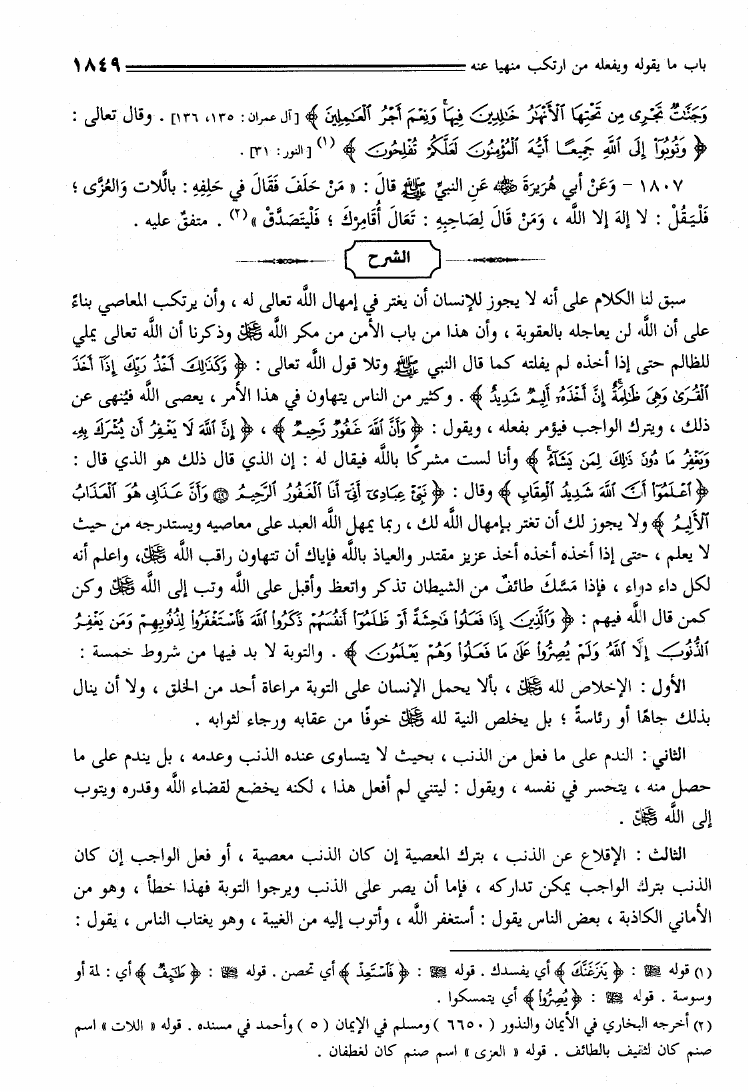 باب ما يقوله ويفعله من ارتكب منهيا عنه ١٨٤٩
وَجَنَّٰتٌ تَجْرِى مِن تَحْتِهَا ٱلْأَنْهَٰرُ خَٰلِدِينَ فِيهَا ۚ وَنِعْمَ أَجْرُ ٱلْعَٰمِلِينَ ﴾ [آل عمران : ١٣٥، ١٣٦] . وقال تعالى :
﴿ وَتُوبُوٓا۟ إِلَى ٱللَّهِ جَمِيعًا أَيُّهَ ٱلْمُؤْمِنُونَ لَعَلَّكُمْ تُفْلِحُونَ ﴾ (١) [النور : ٣١] .
١٨٠٧ - وَعَنْ أَبي هُرَيرَةَ ﷺ عَنِ النبيِّ ﷺ قالَ : « مَنْ حَلَفَ فَقَالَ في حَلِفِهِ : بِاللَّات وَالعُزَّى ؛
فَلْيَقُلْ : لا إِلهَ إلا اللَّه ، وَمَنْ قَالَ لِصَاحِبِهِ : تَعَالَ أُقَامِرْكَ ؛ فَلْيَتَصَدَّقْ » (٢) . متفقٌ عليه .
الشرح
سبق لنا الكلام على أنه لا يجوز للإنسان أن يغتر في إمهال اللَّه تعالى له ، وأن يرتكب المعاصي بناءً
على أن اللَّه لن يعاجله بالعقوبة ، وأن هذا من باب الأمن من مكر اللَّه عز وجل وذكرنا أن اللَّه تعالى يملي
للظالم حتى إذا أخذه لم يفلته كما قال النبي ﷺ وتلا قول اللَّه تعالى : ﴿ وَكَذَٰلِكَ أَخْذُ رَبِّكَ إِذَآ أَخَذَ
ٱلْقُرَىٰ وَهِىَ ظَٰلِمَةٌ ۚ إِنَّ أَخْذَهُۥٓ أَلِيمٌ شَدِيدٌ ﴾ . وكثير من الناس يتهاون في هذا الأمر ، يعصي اللَّه فيُنهى عن
ذلك ، ويترك الواجب فيؤمر بفعله ، ويقول : ﴿ وَأَنَّ ٱللَّهَ غَفُورٌ رَّحِيمٌ ﴾ ، ﴿ إِنَّ ٱللَّهَ لَا يَغْفِرُ أَن يُشْرَكَ بِهِۦ
وَيَغْفِرُ مَا دُونَ ذَٰلِكَ لِمَن يَشَآءُ ۚ ﴾ وأنا لست مشركًا باللَّه فيقال له : إن الذي قال ذلك هو الذي قال :
﴿ ٱعْلَمُوٓا۟ أَنَّ ٱللَّهَ شَدِيدُ ٱلْعِقَابِ ﴾ وقال : ﴿ نَبِّئْ عِبَادِىٓ أَنِّىٓ أَنَا ٱلْغَفُورُ ٱلرَّحِيمُ ۝ وَأَنَّ عَذَابِى هُوَ ٱلْعَذَابُ
ٱلْأَلِيمُ ﴾ ولا يجوز لك أن تغتر بإمهال اللَّه لك ، ربما يمهل اللَّه العبد على معاصيه ويستدرجه من حيث
لا يعلم ، حتى إذا أخذه أخذه أخذ عزيز مقتدر والعياذ باللَّه فإياك أن تتهاون راقب اللَّه عز وجل، واعلم أنه
لكل داء دواء ، فإذا مَسَّكَ طائفٌ من الشيطان تذكر واتعظ وأقبل على اللَّه وتب إلى اللَّه عز وجل وكن
كمن قال اللَّه فيهم : ﴿ وَٱلَّذِينَ إِذَا فَعَلُوا۟ فَٰحِشَةً أَوْ ظَلَمُوٓا۟ أَنفُسَهُمْ ذَكَرُوا۟ ٱللَّهَ فَٱسْتَغْفَرُوا۟ لِذُنُوبِهِمْ وَمَن يَغْفِرُ
ٱلذُّنُوبَ إِلَّا ٱللَّهُ وَلَمْ يُصِرُّوا۟ عَلَىٰ مَا فَعَلُوا۟ وَهُمْ يَعْلَمُونَ ﴾ . والتوبة لا بد فيها من شروط خمسة :
الأول : الإخلاص لله عز وجل ، بألا يحمل الإنسان على التوبة مراعاة أحد من الخلق ، ولا أن ينال
بذلك جاهًا أو رئاسةً ؛ بل يخلص النية لله عز وجل خوفًا من عقابه ورجاء لثوابه .
الثاني : الندم على ما فعل من الذنب ، بحيث لا يتساوى عنده الذنب وعدمه ، بل يندم على ما
حصل منه ، يتحسر في نفسه ، ويقول : ليتني لم أفعل هذا ، لكنه يخضع لقضاء اللَّه وقدره ويتوب
إلى اللَّه عز وجل .
الثالث : الإقلاع عن الذنب ، بترك المعصية إن كان الذنب معصية ، أو فعل الواجب إن كان
الذنب بترك الواجب يمكن تداركه ، فإما أن يصر على الذنب ويرجوا التوبة فهذا خطأ ، وهو من
الأماني الكاذبة ، بعض الناس يقول : أستغفر اللَّه ، وأتوب إليه من الغيبة ، وهو يغتاب الناس ، يقول :
(١) قوله ﷻ : ﴿ يَنزَغَنَّكَ ﴾ أي يفسدك . قوله ﷻ : ﴿ فَٱسْتَعِذْ ﴾ أي تحصن . قوله ﷻ : ﴿ طَٰٓئِفٌ ﴾ أي : لمة أو
وسوسة . قوله ﷻ : ﴿ يُصِرُّوا۟ ﴾ أي يتمسكوا .
(٢) أخرجه البخاري في الأيمان والنذور ( ٦٦٥٠ ) ومسلم في الإيمان ( ٥ ) وأحمد في مسنده . قوله « اللات » اسم
صنم كان لثقيف بالطائف . قوله « العزى » اسم صنم كان لغطفان .